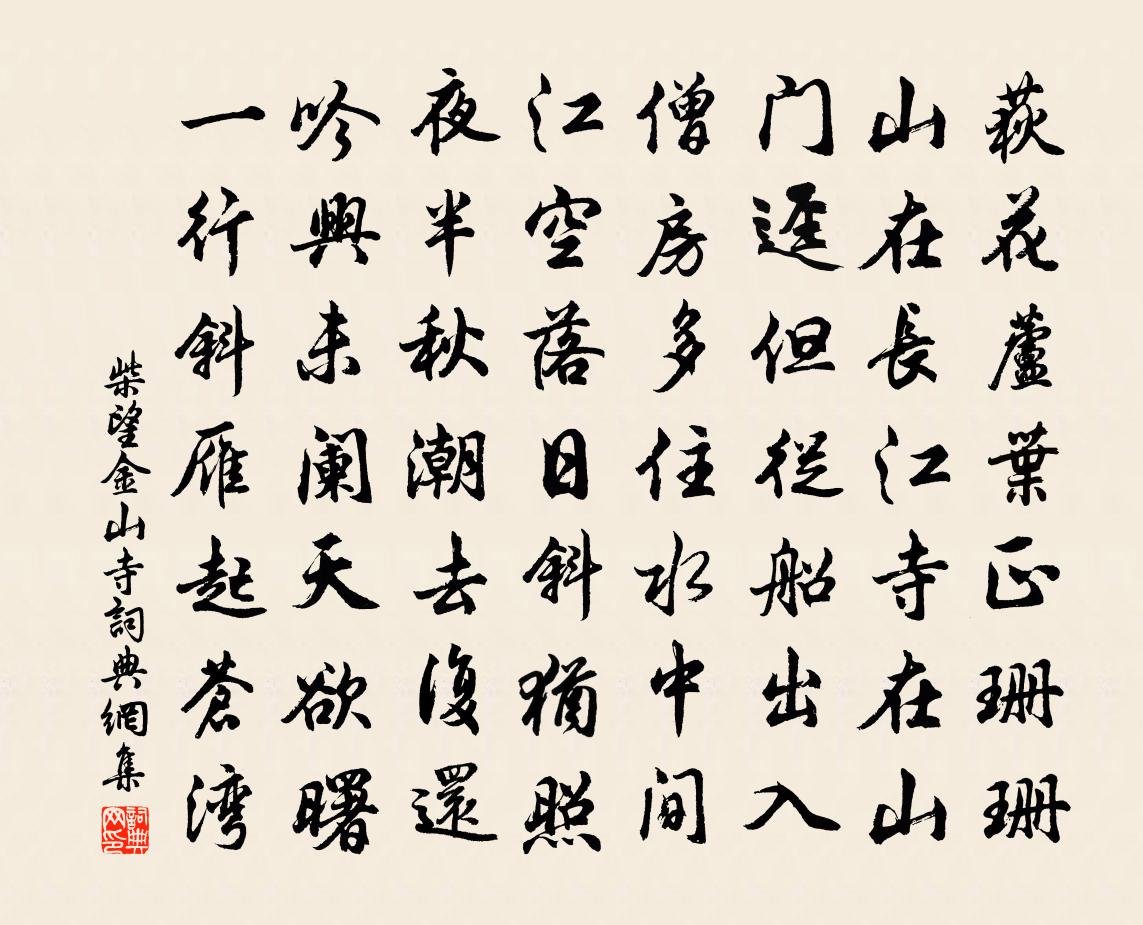 萩花蘆葉正珊珊
山在長江寺在山
门逕但從船出入
僧房多住水中间
江空落日斜猶照
夜半秋潮去復還
吟興未阑天欲曙
一行斜雁起蒼湾
柴望金山寺詞典網集
詞典网印